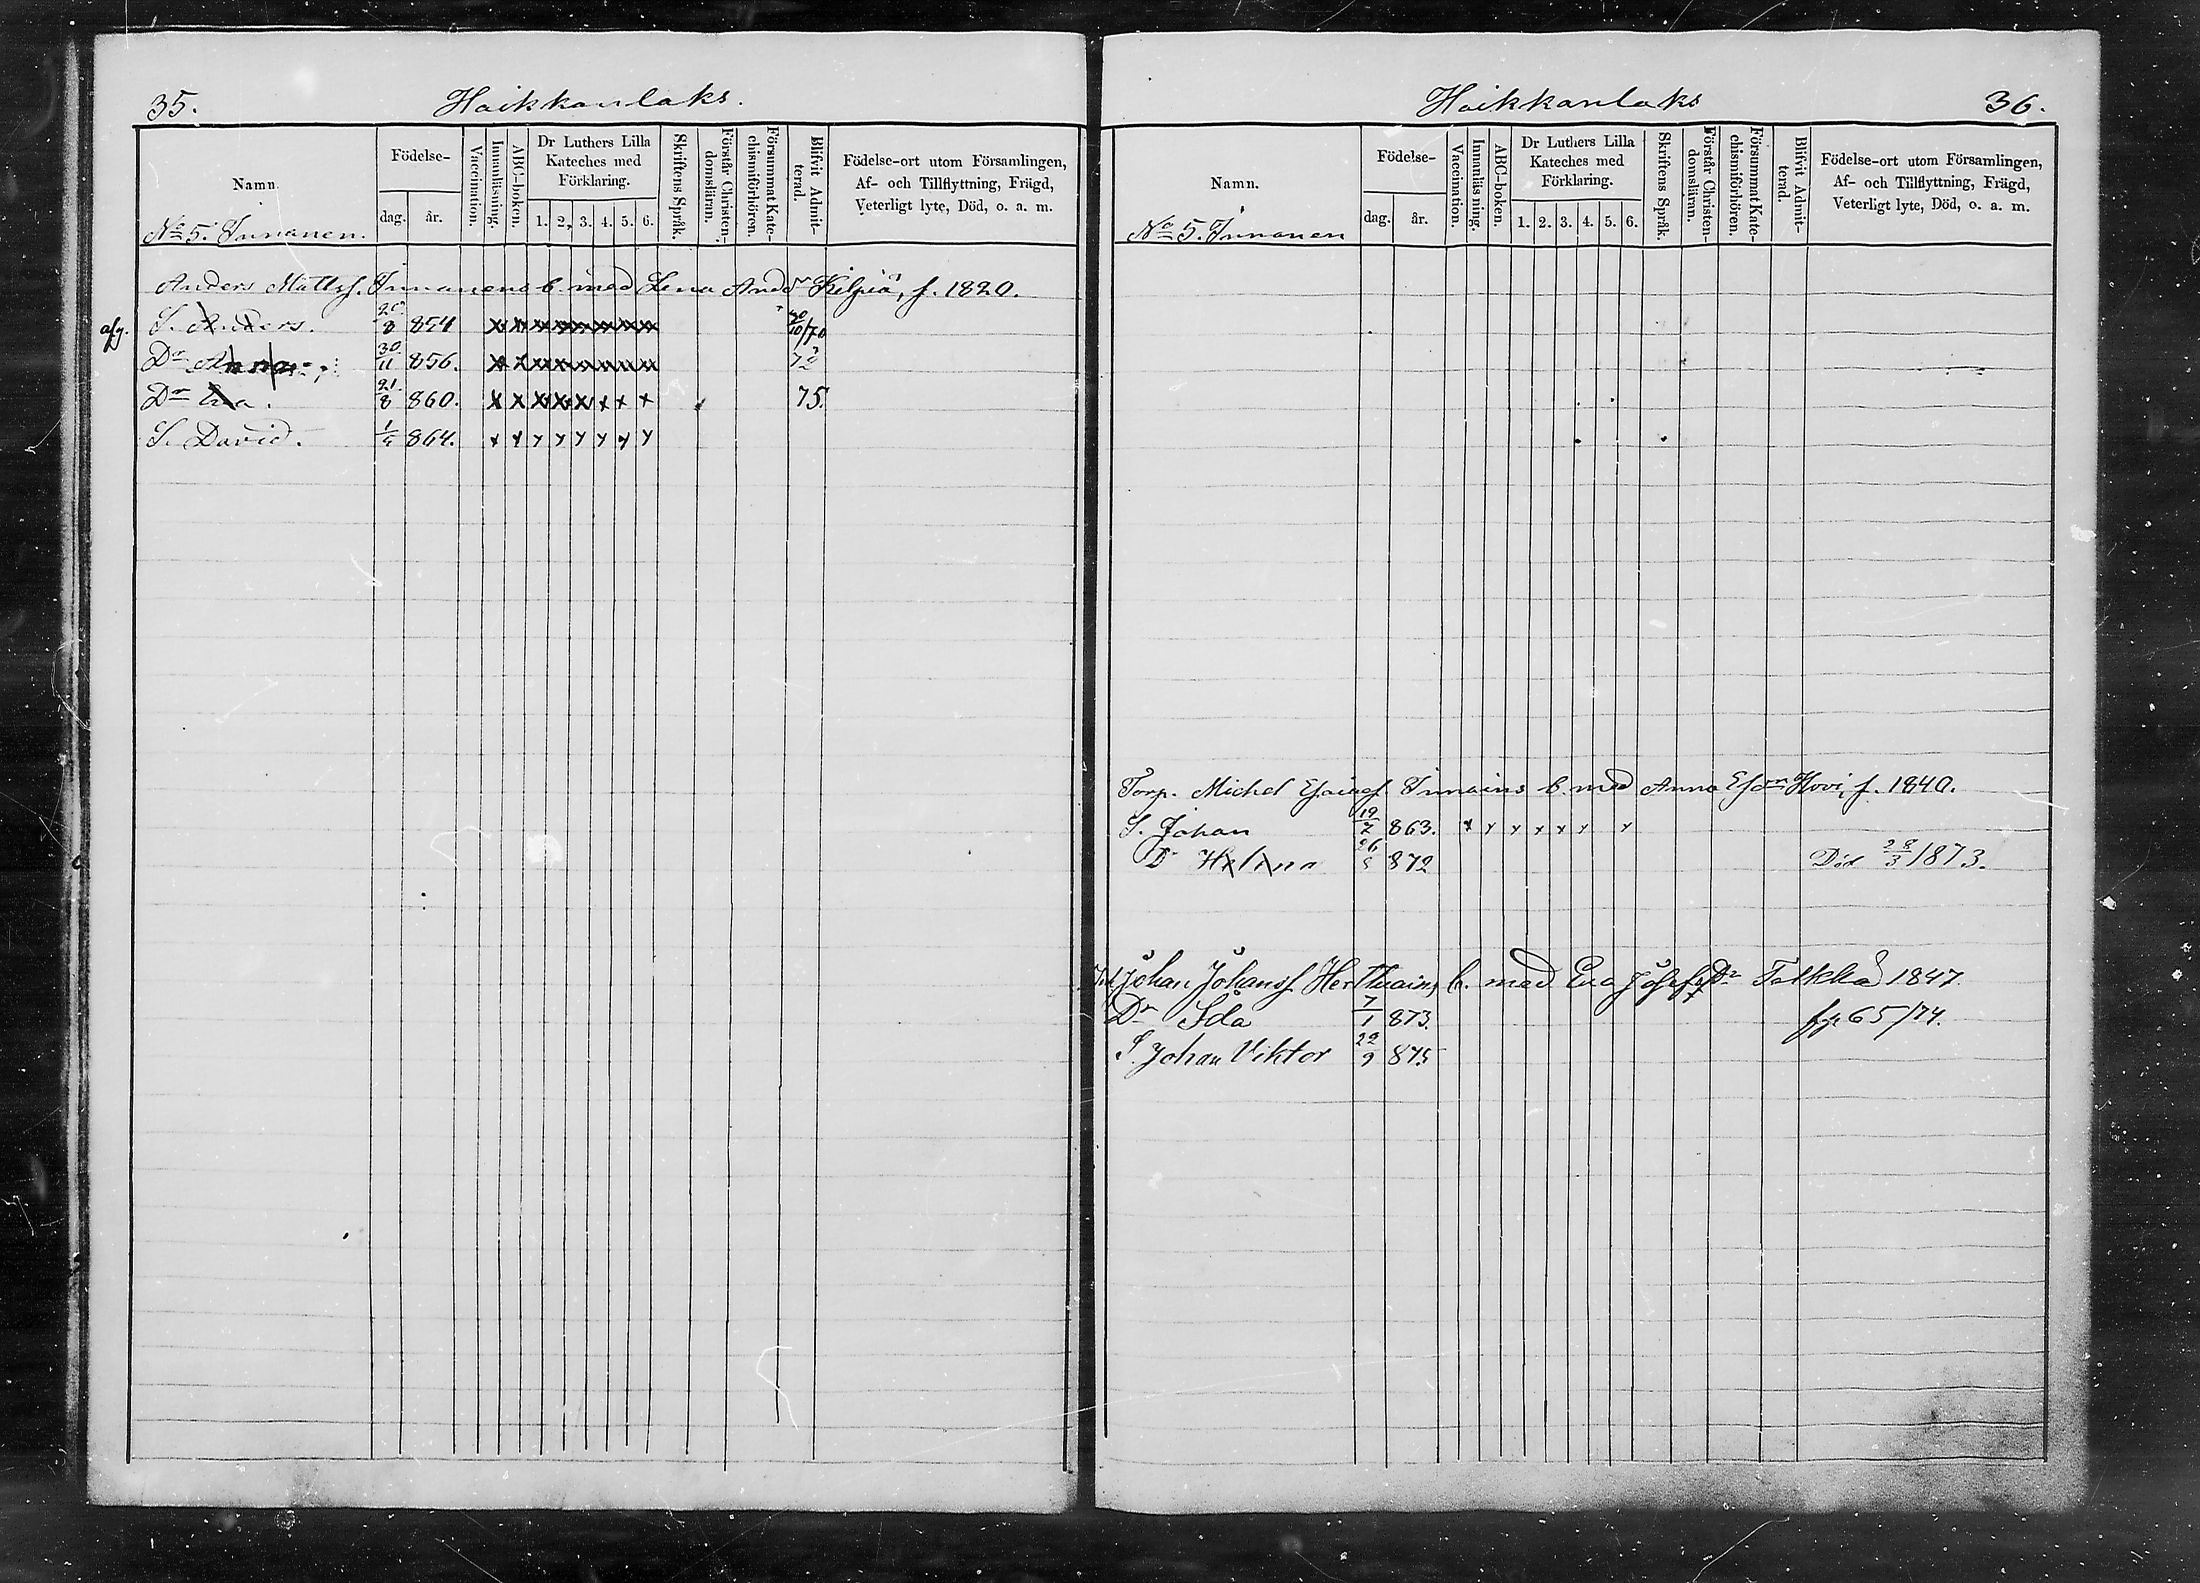 35. Haikkanlaks.
Namn. Födelse- dag. år. Vaccination. Innanläsning. ABC-boken. Dr Luthers Lilla Kateches med Förklaring. 1. 2. 3. 4. 5. 6. Skriftens Språk. Förstår Christendomsläran. Försummat Katechismiförhören. Blifvit Admitterad. Födelse-ort utom Församlingen, Af- och Tillflyttning, Frägd, Veterligt lyte, Död, o. a. m.
No 5. Innanen.
Anders Mattss. Innanens b. med Lena Andsdr Kilpiä, f. 1820.
afg. S. Anders. 8 854 x x x x x x x x 20/10/70
Dr Anna 30/11 856. x x x x x x x x 72
Dr Eva. 21/8 860. x x x x x x x x 75.
S. David. 864. x x x x x x x x
Haikkanlaks 36.
Namn. Födelse- dag. år. Vaccination. Innanläsning. ABC-boken. Dr Luthers Lilla Kateches med Förklaring. 1. 2. 3. 4. 5. 6. Skriftens Språk. Förstår Christendomsläran. Försummat Katechismiförhören. Blifvit Admitterad. Födelse-ort utom Församlingen, Af- och Tillflyttning, Frägd, Veterligt lyte, Död, o. a. m.
No 5. Innanen
Torp. Michel Esaiass. Innains b. med Anna Esdr Hovi, f. 1840.
S. Johan 19/7 863. x x x x x x x
Dr Helena 26 872 Död 28/3 1873.
Johan Johanss Herttuains b. med Eva Josefsdr Talkka 1847.
Dr Ida 7/1 873. 65/74.
S. Johan Viktor 22/9 875